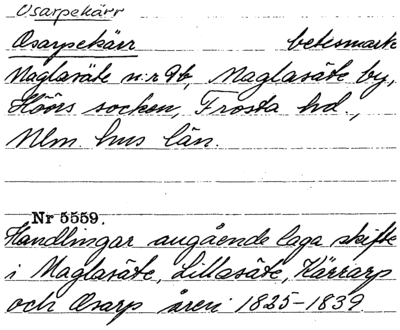 Osarpekärr
Osarpekärr betesmark
Maglasäte n:r 9b, Maglasäte by,
Höörs socken, Frosta hd.,
Mlm. hus län.
Nr 5559.
Handlingar angående laga skifte
i Maglasäte, Lillasäte, Kärrarp
och Osarp åren 1825-1839